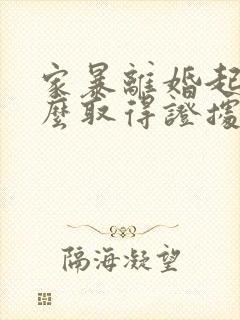 家暴離婚起
麼取得證據
隔海凝望